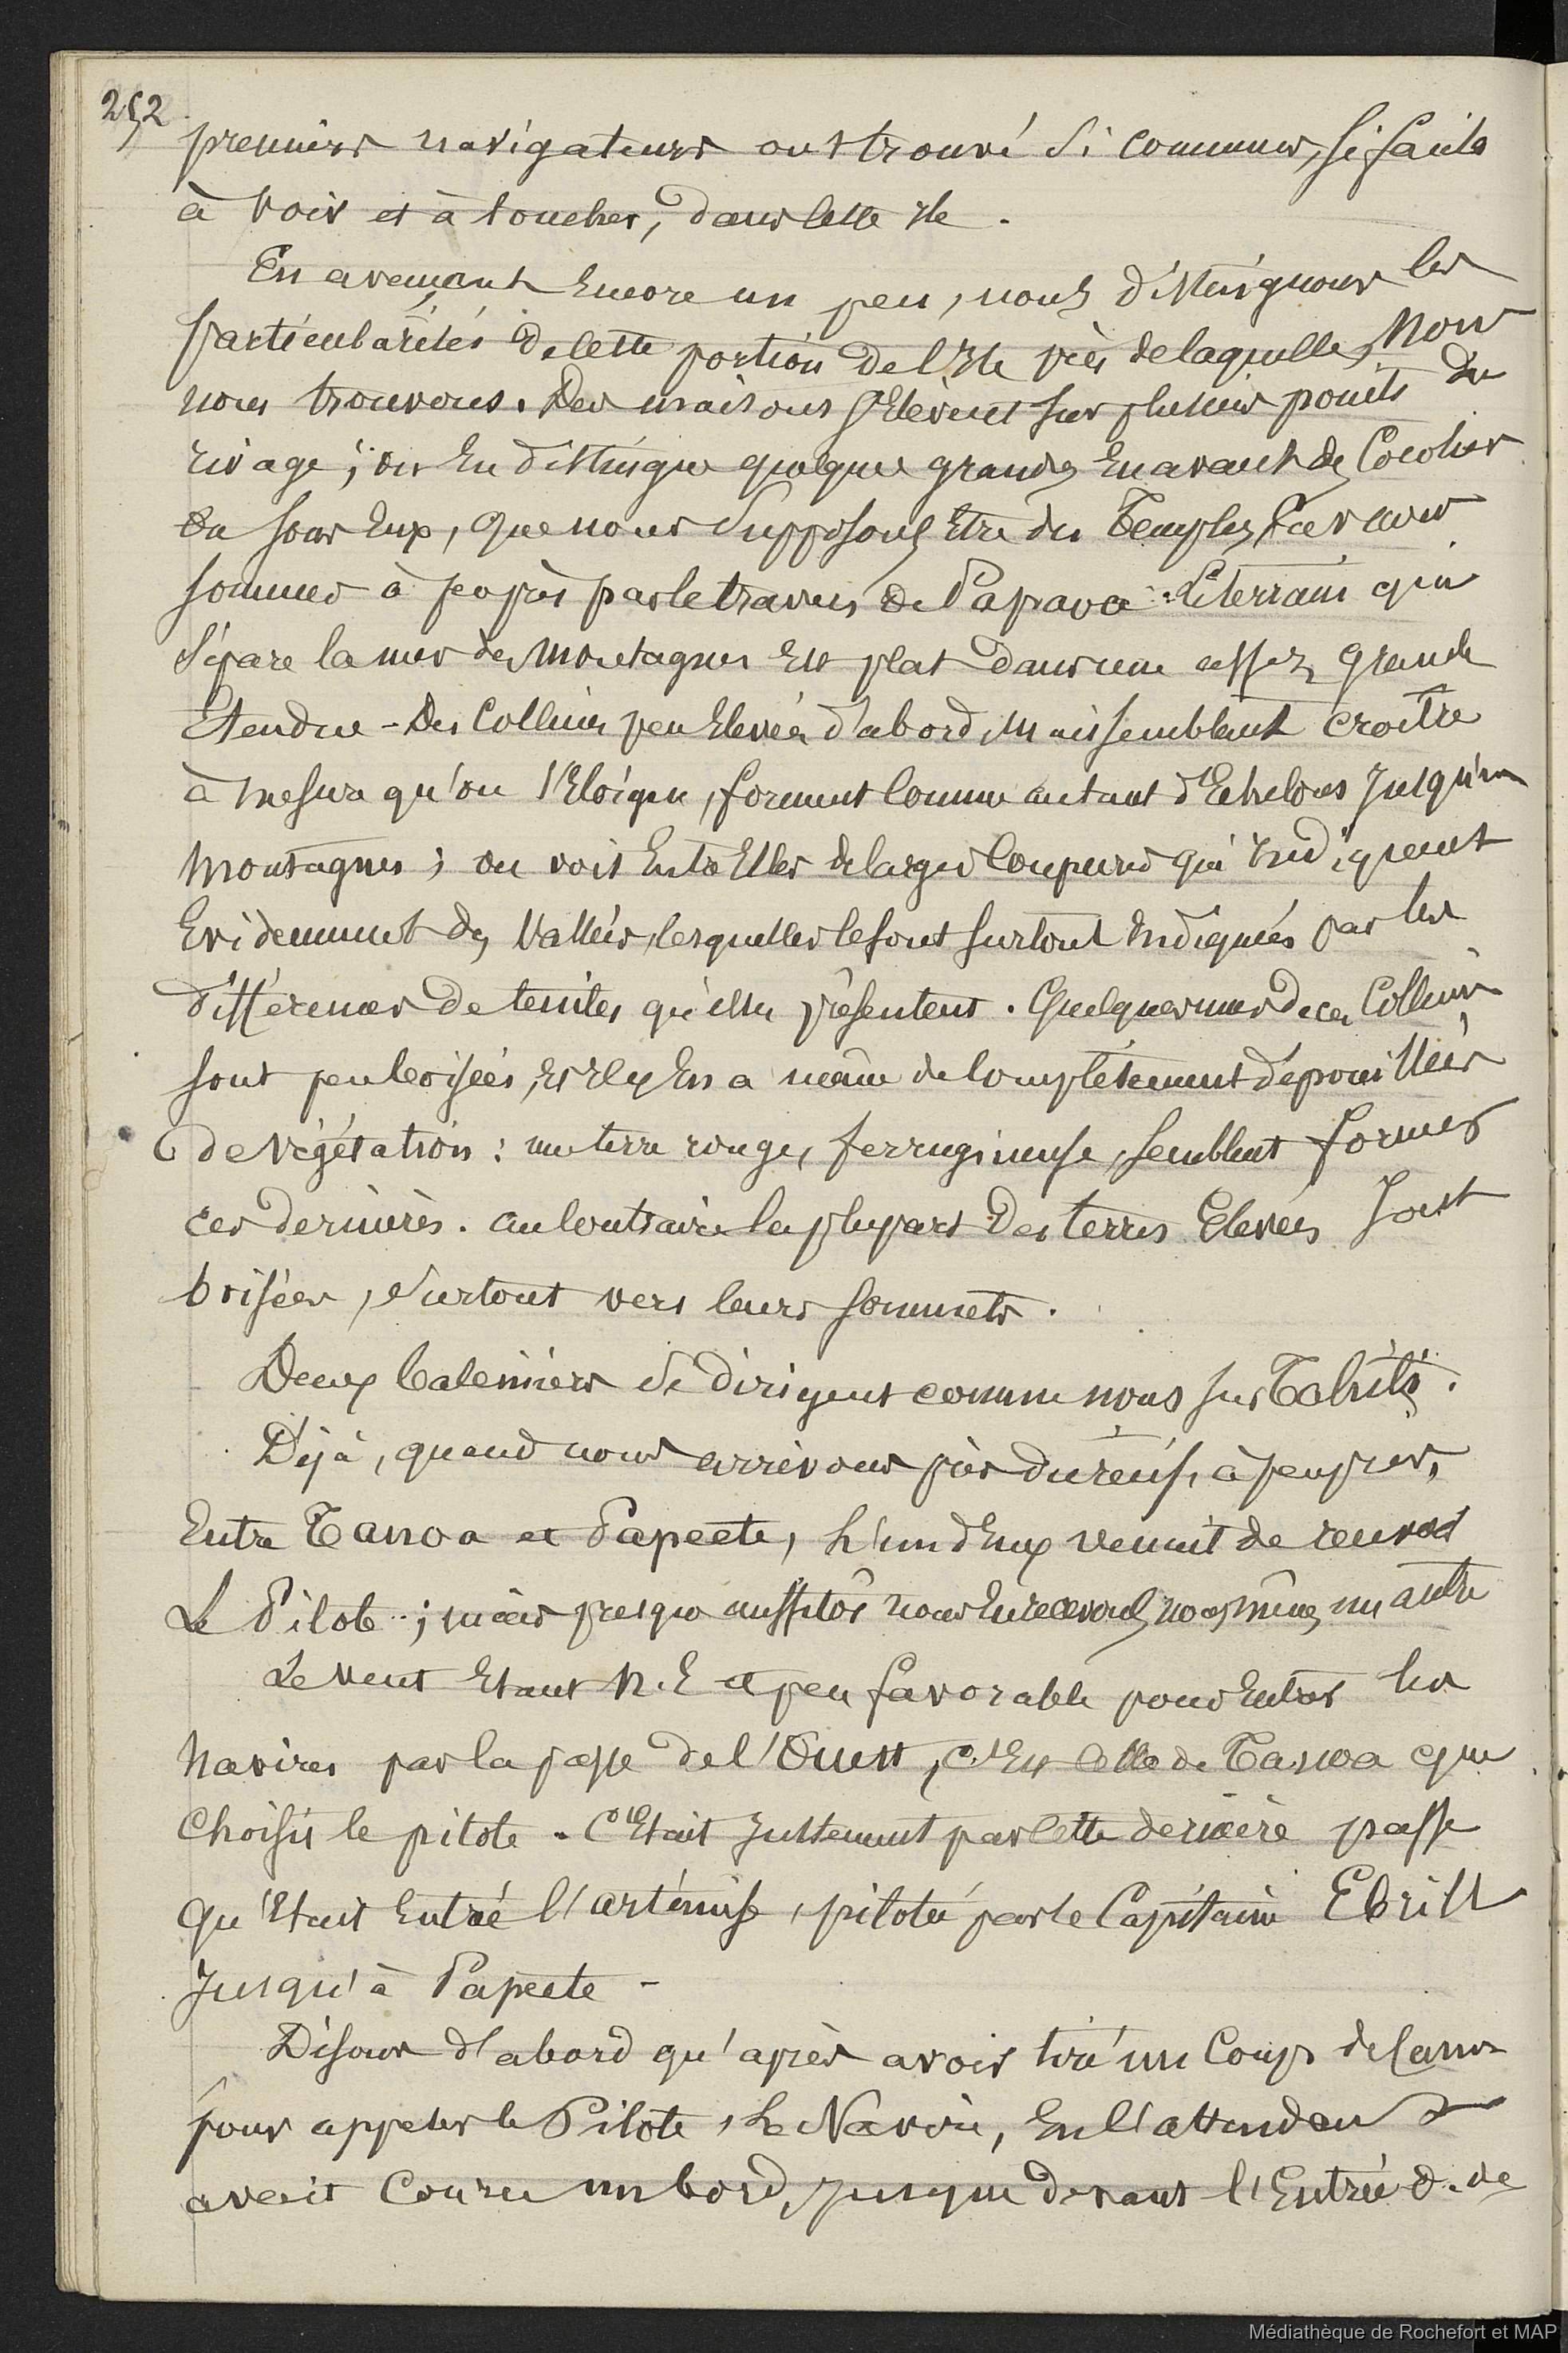 252
premiers navigateurs ont trouvé si communes, si faciles
à voir et à toucher, dans cette Ile.
En avançant Encore un peu, nous distinguons les
particularités de cette portion de l'Ile près de laquelle Nous
nous trouvons. Des maisons s'Elèvent sur plusieurs points du
rivage ; on En distingue quelques grandes En avant des Cocotiers
Ou sous Eux, que nous supposons Etre des Temples, Car nous
sommes à peu près par le travers de Papava. Le terrain qui
sépare la mer des Montagnes Est plat dans une assez grande
Etendue - Des Collines peu Elevées d'abord, Mais semblant croître
à mesure qu'on s'Eloigne, forment Comme autant d'Echelons Jusqu'aux
Montagnes ; on voit Entre Elles de larges Coupures qui Indiquent
Evidemment des Vallées, lesquelles le sont surtout Indiquées par les
différences de teintes qu'elles présentent. Quelques unes de ces Collines
sont peu boisées, Et Il y En a même de Complètement dépouillées
de Végétation : une terre rouge, ferrugineuse, semblent former
ces dernières. Au Contraire la plupart Des terres Elevées Sont
boisées, surtout vers leurs sommets.
Deux baleiniers se dirigent comme nous sur Tahiti.
Déjà, quand nous arrivons près du récif, à peu près,
Entre Tanoa et Papeete, L'un d'Eux venait de recevoir
Le Pilote ; mais presque aussitôt nous En recevons nous mêmes un autre
Le vent Etant N.E et peu favorable pour Entrer les
Navires par la passe de l'Ouest, C'Est Celle de Tanoa que
Choisit le pilote. C'Etait Justement par Cette dernière passe
qu'Etait Entrée l'artémise, pilotée par le Capitaine Ebrill
Jusqu'à Papeete -
Disons d'abord qu'après avoir tiré un Coup de Canon
pour appeler le Pilote, Le Navire, En l'attendant
avait Couru un bord, Jusque devant l'Entrée de